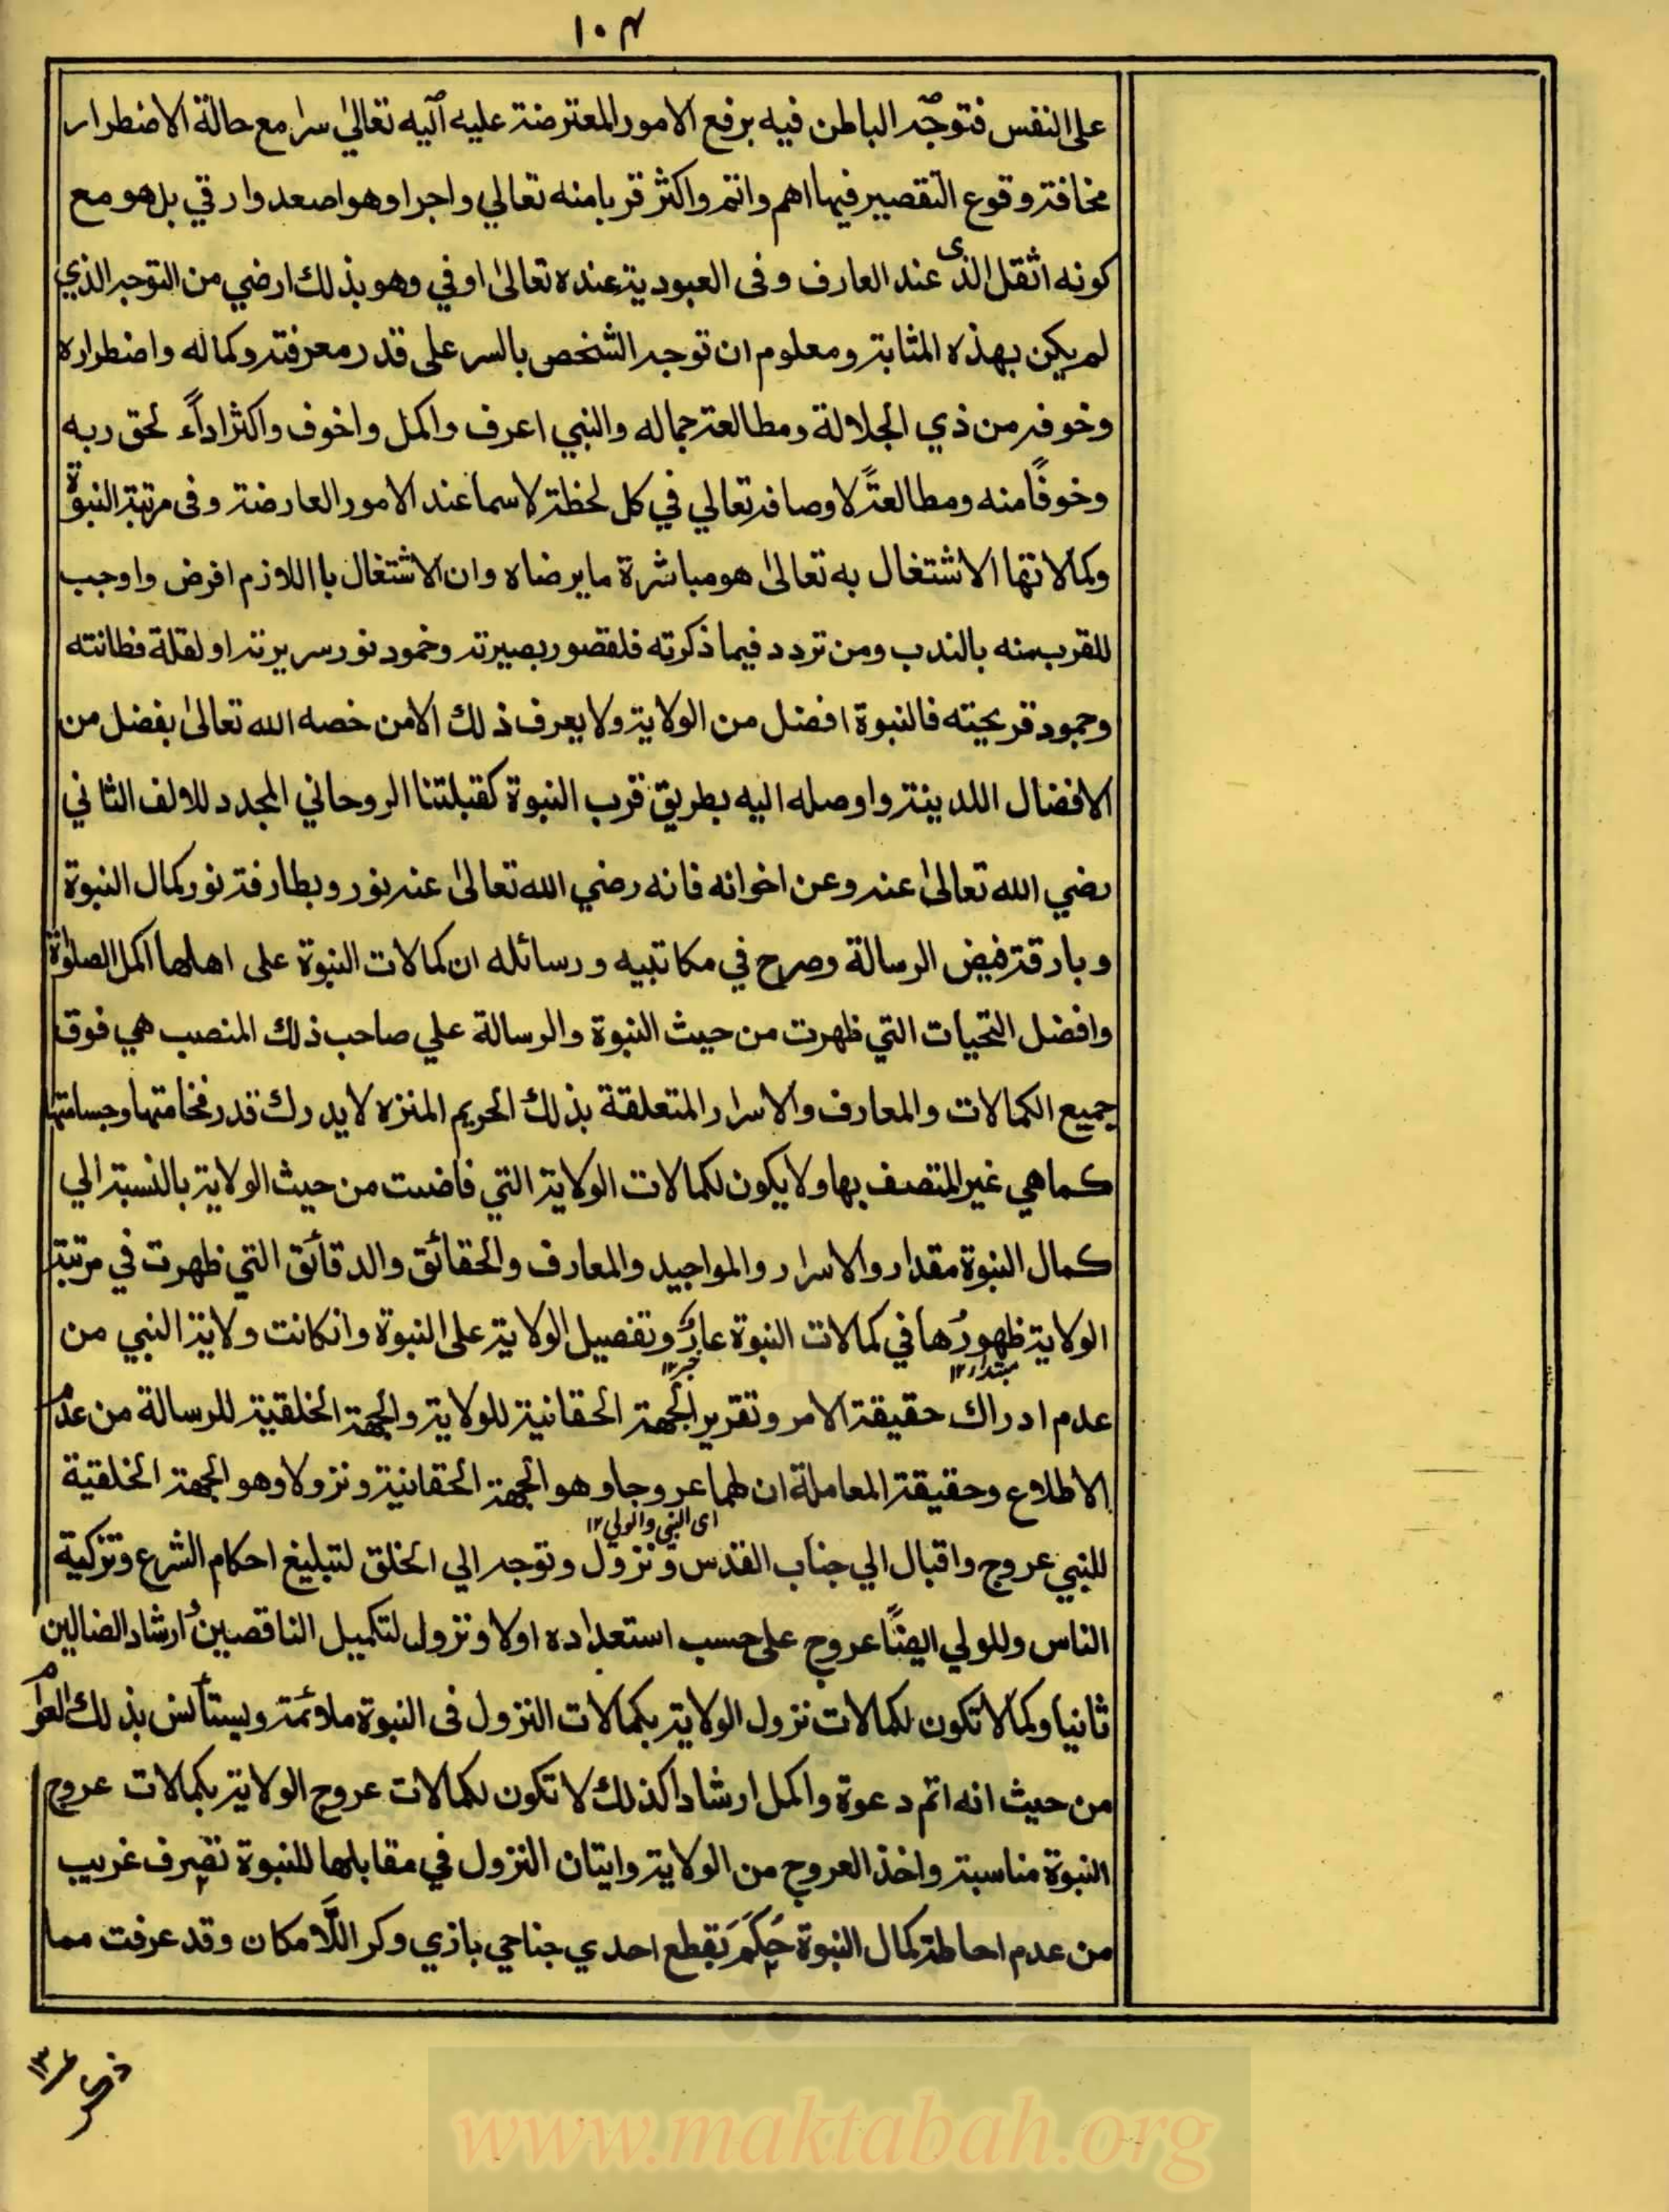 ١٠٣
على النفس فتوجّه الباطن فيه برفع الامور المعترضة عليه اليه تعالىٰ سرا مع حالة الاضطرار
مخافة وقوع التقصير فيها اهم واتم واكثر قربا منه تعالي واجرا وهو اصعد وارقي بل هو مع
كونه اثقل الذى عند العارف وفى العبودية عنده تعالىٰ اوفي وهو بذلك ارضي من التوجه الذي
لم يكن بهذه المثابة ومعلوم ان توجه الشخص بالسر على قدر معرفته وكماله واضطراره
وخوفه من ذي الجلالة ومطالعة جماله والنبي اعرف واكمل واخوف واكثر اداءً لحق ربه
وخوفًا منه ومطالعتًه لاوصافه تعالي في كل لحظة لاسما عند الامور العارضة وفى مرتبة النبوة
وكمالاتها الاشتغال به تعالىٰ هو مباشرة ما يرضاه وان الاشتغال باللازم افرض واوجب
للقرب منه بالندب ومن تردد فيما ذكرته فلقصور بصيرته وخمود نور سريرته او لقلة فطانته
وجمود قريحته فالنبوة افضل من الولاية ولا يعرف ذلك الا من خصه الله تعالىٰ بفضل من
الافضال اللدينة واوصله اليه بطريق قرب النبوة كقبلتنا الروحاني المجدد للالف الثاني
رضي الله تعالىٰ عنه وعن اخوانه فانه رضي الله تعالىٰ عنه نور وبطارفة نور كمال النبوة
وبارقة فيض الرسالة وصرح في مكاتبيه ورسائله ان كمالات النبوة على اهلها اكمل الصلوٰة
وافضل التحيات التي ظهرت من حيث النبوة والرسالة علي صاحب ذلك المنصب هي فوق
جميع الكمالات والمعارف والاسرار المتعلقة بذلك الحريم المنزه لا يدرك قدر فخامتها وجسامتها
كماهي غير المتصف بها ولا يكون لكمالات الولاية التي فاضت من حيث الولاية بالنسبة الي
كمال النبوة مقدار والاسرار والمواجيد والمعارف والحقائق والدقائق التي ظهرت في مرتبة
الولاية ظهورُها في كمالات النبوة عارٌ وتفضيل الولاية على النبوة وانكانت ولاية النبي من
مبتدا ١٢ خبر ١٢
عدم ادراك حقيقة الامر وتقرير الجهة الحقانية للولاية والجهة الخلقية للرسالة من عدم
الاطلاع وحقيقة المعاملة ان لهما عروجا وهو الجهة الحقانية ونزولا وهو الجهة الخلقية
اى النبى والولي ١٢
للنبي عروج واقبال الي جناب القدس ونزول وتوجه الي الخلق لتبليغ احكام الشرع وتزكية
الناس وللولي ايضًا عروج على حسب استعداده اولا ونزول لتكميل الناقصين وارشاد الضالين
ثانيا وكما لا تكون لكمالات نزول الولاية بكمالات النزول فى النبوة ملائمة ويستأنس بذلك العوام
من حيث انه اتم دعوة واكمل ارشادا كذلك لا تكون لكمالات عروج الولاية بكمالات عروج
النبوة مناسبة واخذ العروج من الولاية واتيان النزول في مقابلها للنبوة تصرف غريب
من عدم احاطة كمال النبوة حِكَمَ بقطع احدي جناحي بازي وكر اللَّامكان وقد عرفت مما
www.maktabah.org